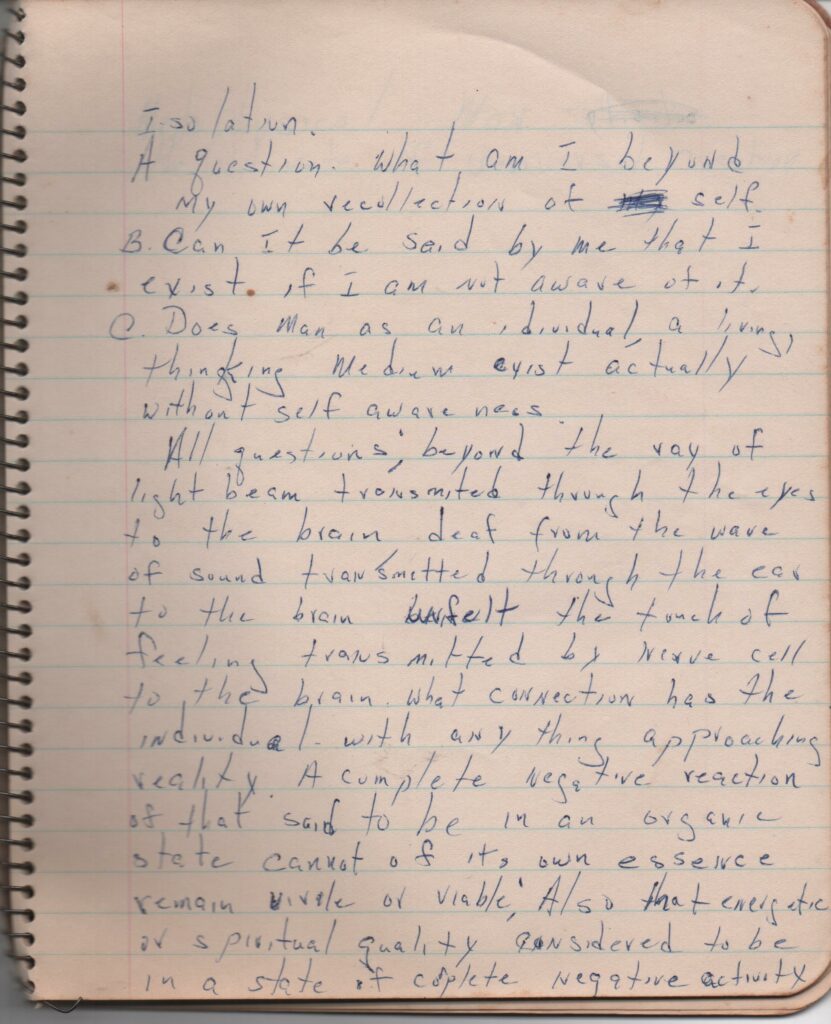 Isolation.
A question. What am I beyond
My own recollection of self.
B. Can It be said by me that I
exist. if I am not aware of it.
C. Does Man as an idividual, a living,
thingking Medium exist actually
without self awareness.
All questions; beyond the ray of
light beam transmited through the eyes
to the brain deaf from the wave
of sound transmetted through the ear
to the brain unfelt the touch of
feeling transmitted by Nerve cell
to the brain. What connection has the
individual. with any thing approaching
reality. A complete Negative reaction
of that said to be in an organic
state cannot of its own essence
remain virile or viable; Also that energetic
or spiritual quality considered to be
in a state of coplete Negative activity